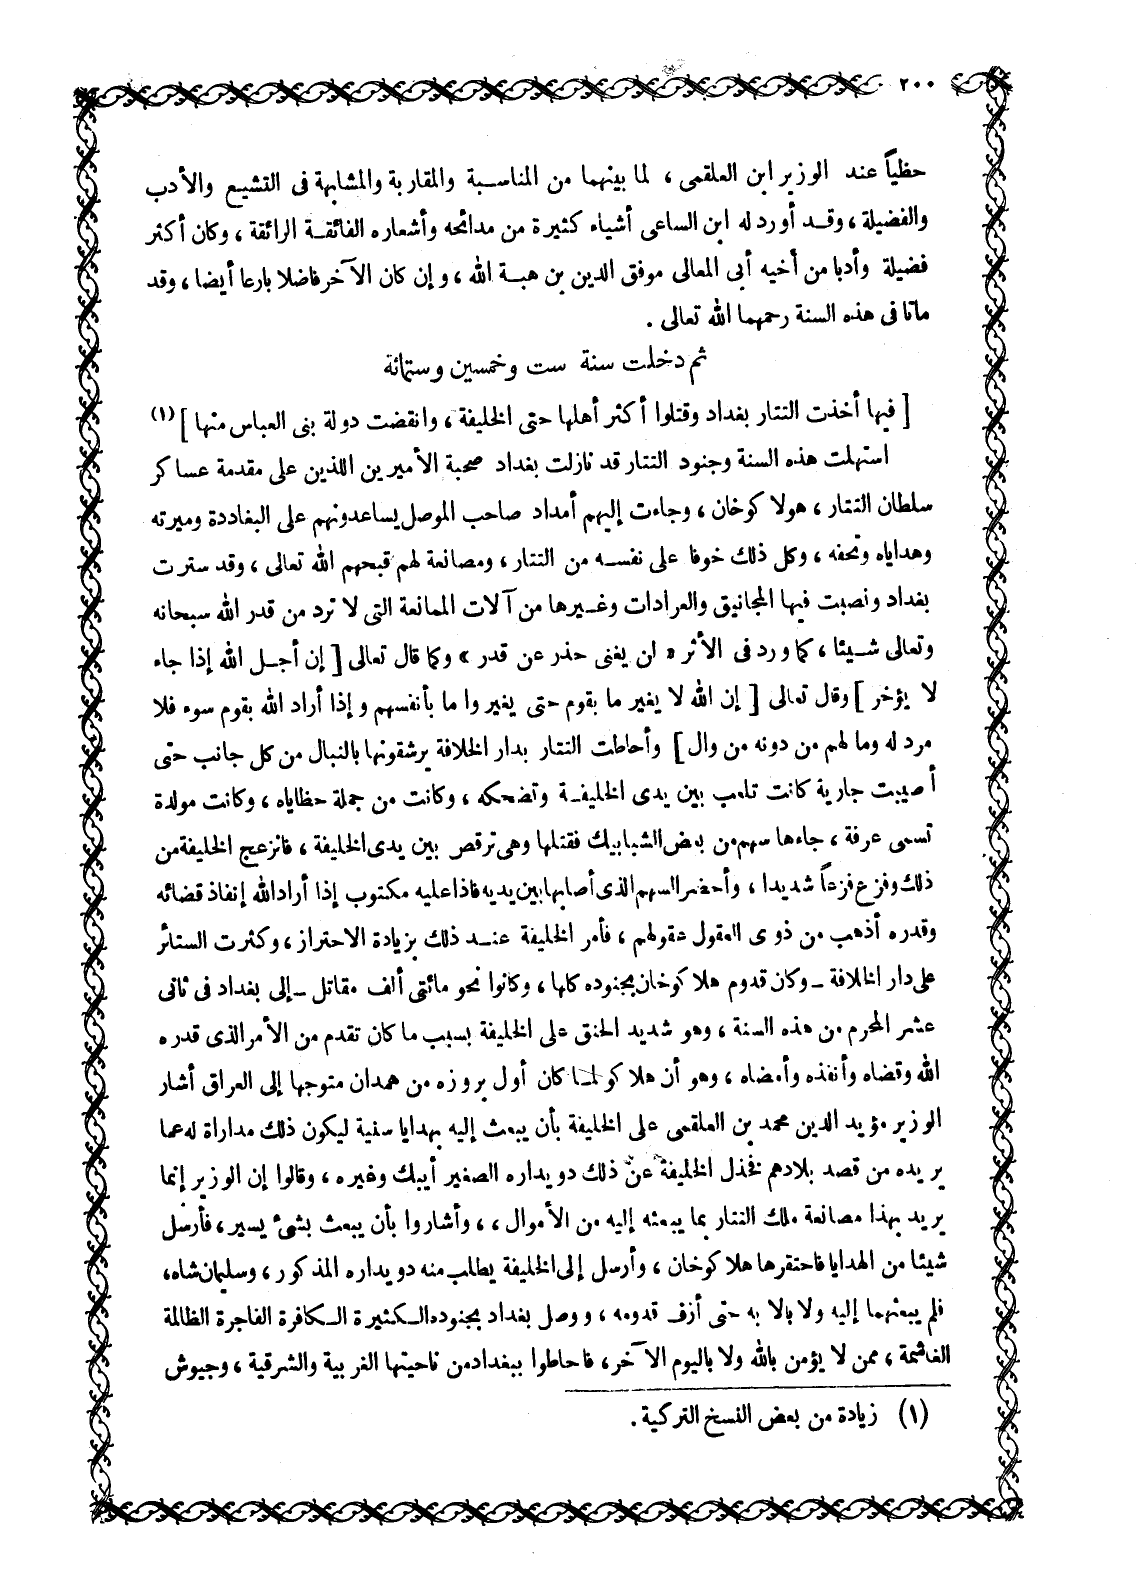 ٢٠٠
حظياً عند الوزير ابن العلقمى ، لما بينهما من المناسبة والمقاربة والمشابهة فى التشيع والأدب
والفضيلة ، وقد أورد له ابن الساعى أشياء كثيرة من مدائحه وأشعاره الفائقة الرائقة ، وكان أكثر
فضيلة وأدبا من أخيه أبى المعالى موفق الدين بن هبة الله ، وإن كان الآخر فاضلا بارعا أيضا ، وقد
ماتا فى هذه السنة رحمهما الله تعالى .
ثم دخلت سنة ست وخمسين وستمائة
[ فيها أخذت التتار بغداد وقتلوا أكثر أهلها حتى الخليفة ، وانقضت دولة بنى العباس منها ] (١)
استهلت هذه السنة وجنود التتار قد نازلت بغداد صحبة الأميرين اللذين على مقدمة عساكر
سلطان التتار ، هولا كوخان ، وجاءت إليهم أمداد صاحب الموصل يساعدونهم على البغاددة وميرته
وهداياه وتحفه ، وكل ذلك خوفا على نفسه من التتار ، ومصانعة لهم قبحهم الله تعالى ، وقد سترت
بغداد ونصبت فيها المجانيق والعرادات وغيرها من آلات الممانعة التى لا ترد من قدر الله سبحانه
وتعالى شيئا ، كما ورد فى الأثر « لن يغنى حذر عن قدر » وكما قال تعالى [ إن أجل الله إذا جاء
لا يؤخر ] وقال تعالى [ إن الله لا يغير ما بقوم حتى يغيروا ما بأنفسهم وإذا أراد الله بقوم سوء فلا
مرد له وما لهم من دونه من وال ] وأحاطت التتار بدار الخلافة يرشقونها بالنبال من كل جانب حتى
أصيبت جارية كانت تلعب بين يدى الخليفة وتضحكه ، وكانت من جملة حظاياه ، وكانت مولدة
تسمى عرفة ، جاءها سهم من بعض الشبابيك فقتلها وهى ترقص بين يدى الخليفة ، فانزعج الخليفة من
ذلك وفزع فزعاً شديدا ، وأحضر السهم الذى أصابها بين يديه فاذا عليه مكتوب إذا أراد الله إنفاذ قضائه
وقدره أذهب من ذوى العقول عقولهم ، فأمر الخليفة عند ذلك بزيادة الاحتراز ، وكثرت الستائر
على دار الخلافة ـ وكان قدوم هلاكوخان بجنوده كلها ، وكانوا نحو مائتى ألف مقاتل ـ إلى بغداد فى ثانى
عشر المحرم من هذه السنة ، وهو شديد الحنق على الخليفة بسبب ما كان تقدم من الأمر الذى قدره
الله وقضاه وأنفذه وأمضاه ، وهو أن هلاكو لما كان أول بروزه من همدان متوجها إلى العراق أشار
الوزير مؤيد الدين محمد بن العلقمى على الخليفة بأن يبعث إليه بهدايا سنية ليكون ذلك مداراة له عما
يريده من قصد بلادهم فخذل الخليفة عن ذلك دويداره الصغير أيبك وغيره ، وقالوا إن الوزير إنما
يريد بهذا مصانعة ملك التتار بما يبعثه إليه من الأموال ، ، وأشاروا بأن يبعث بشئ يسير ، فأرسل
شيئا من الهدايا فاحتقرها هلاكوخان ، وأرسل إلى الخليفة يطلب منه دويداره المذكور ، وسليمان شاه،
فلم يبعثهما إليه ولا بالا به حتى أزف قدومه ، ووصل بغداد بجنوده الكثيرة الكافرة الفاجرة الظالمة
الغاشمة ، ممن لا يؤمن بالله ولا باليوم الآخر ، فأحاطوا ببغداد من ناحيتها الغربية والشرقية ، وجيوش
(١) زيادة من بعض النسخ التركية .